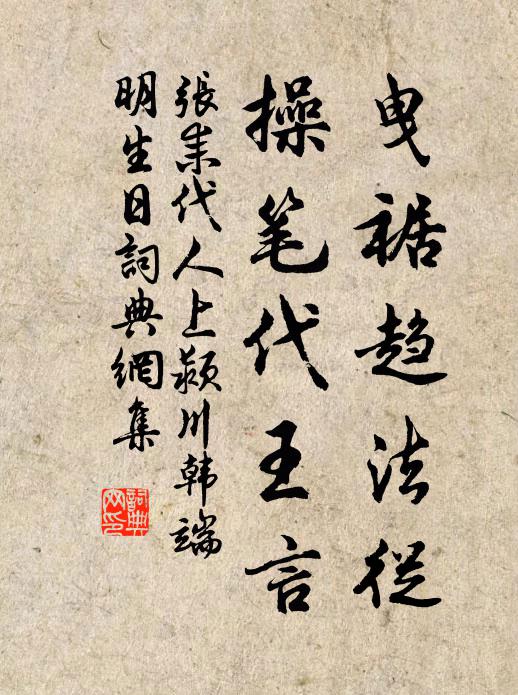 曳裾趋法從
操笔代王言
張耒代人上颍川韩端
明生日詞典網集
詞典网印